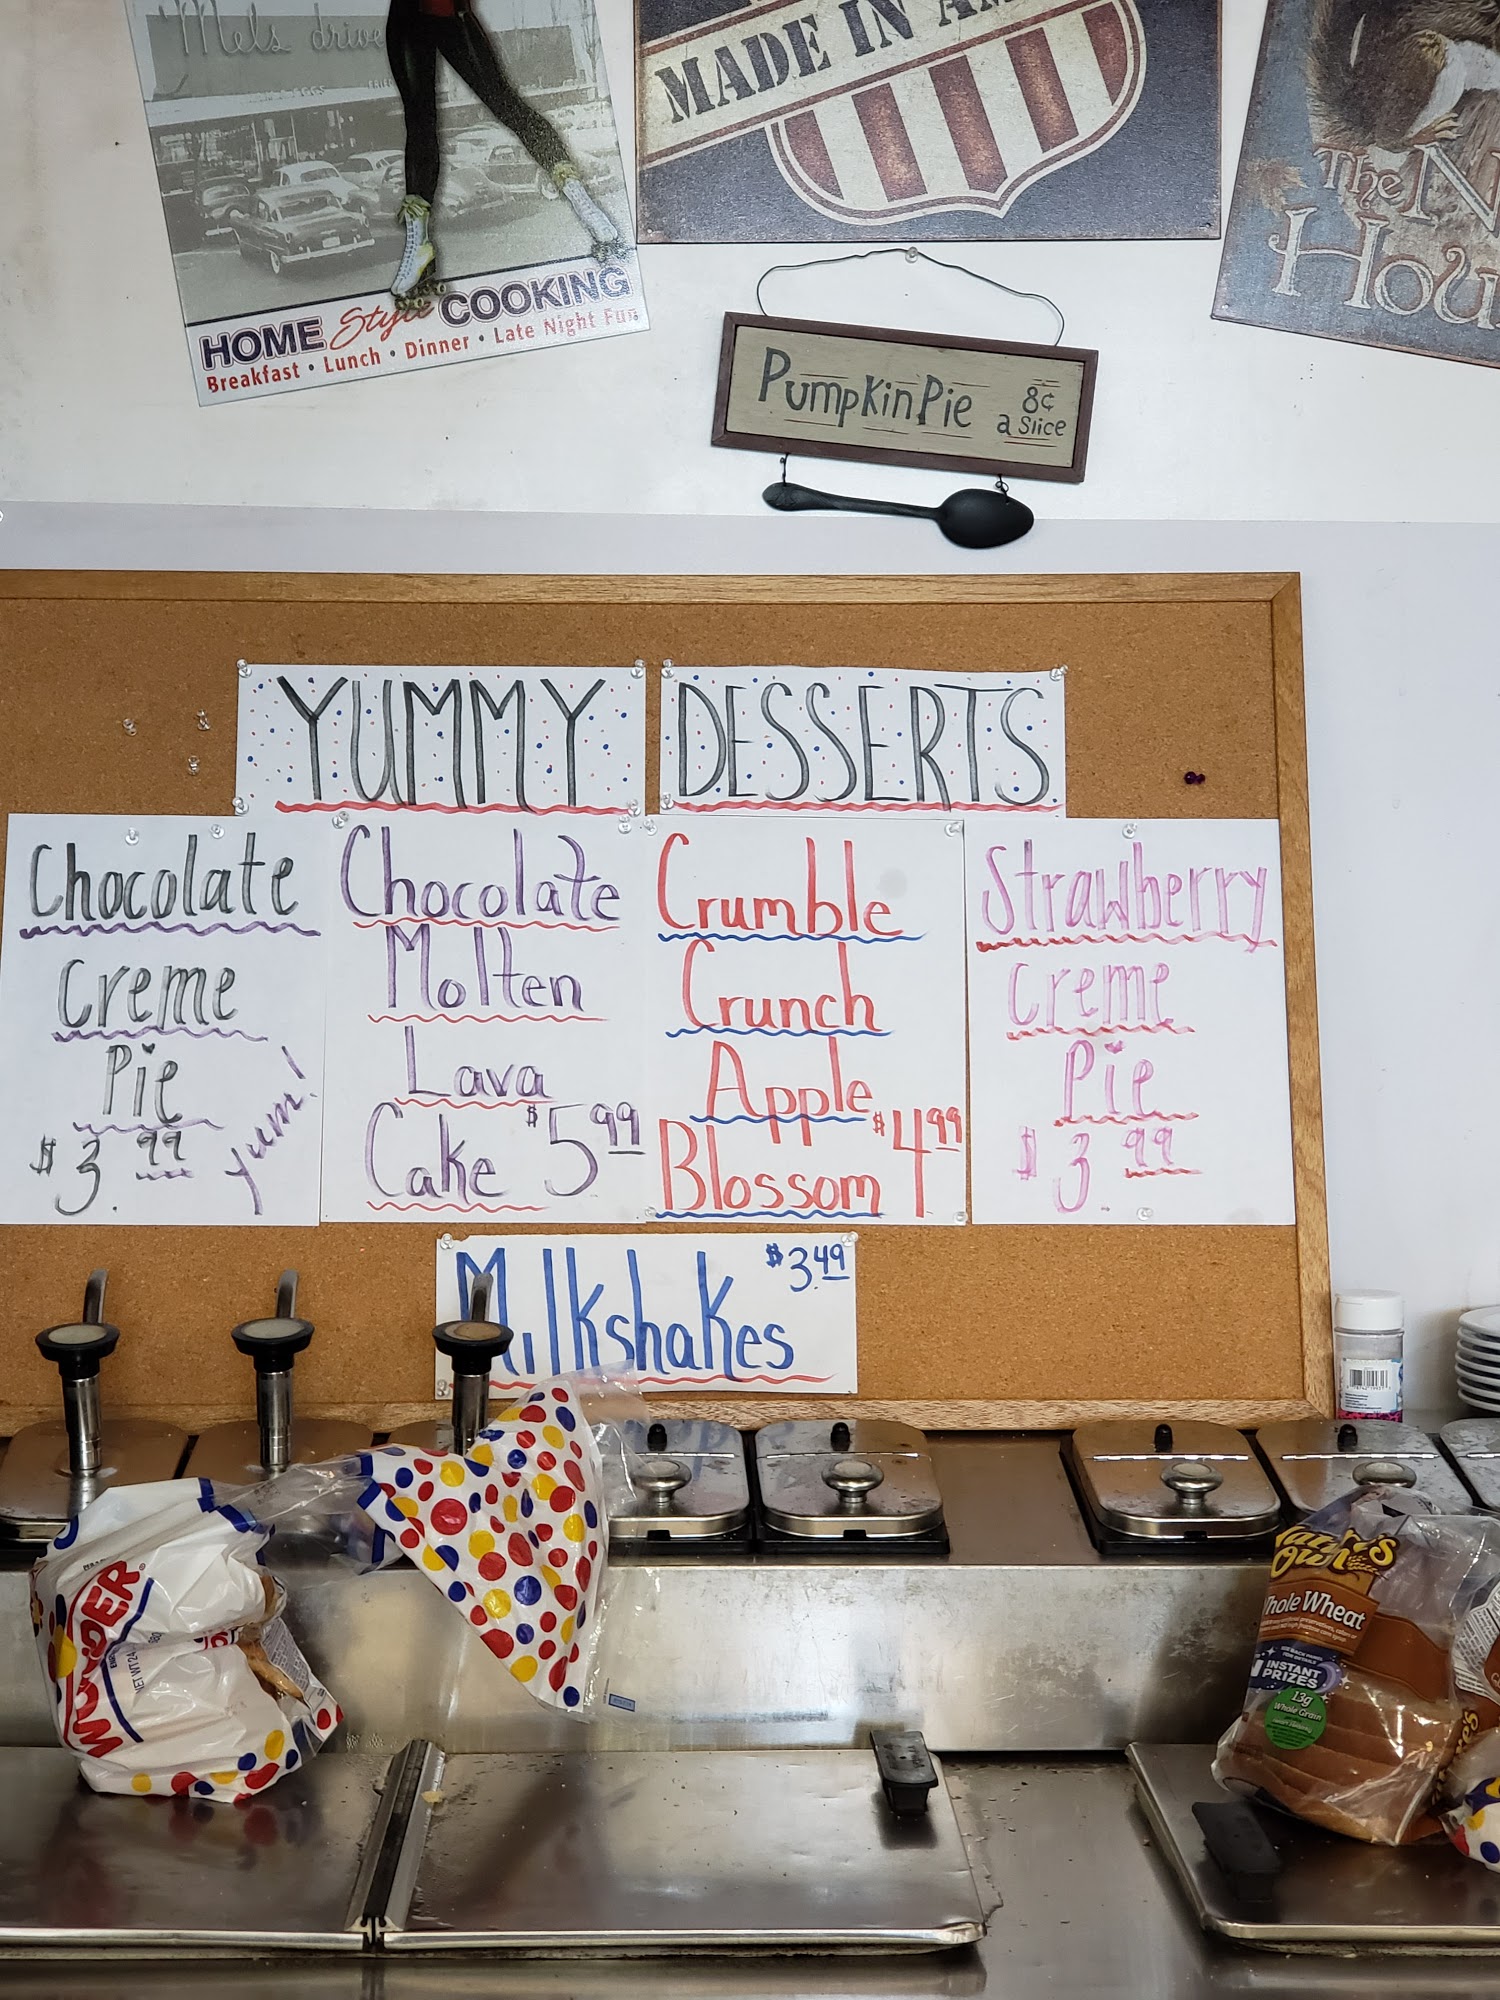 Mels drive
HOME Style COOKING
Breakfast • Lunch • Dinner • Late Night Fun
MADE IN
The
Pumpkin Pie 8¢
a Slice
YUMMY DESSERTS
Chocolate
Creme
Pie
$3.99
Yum!
Chocolate
Molten
Lava
Cake $5.99
Crumble
Crunch
Apple
Blossom $4.99
Strawberry
Creme
Pie
$3.99
Milkshakes $3.49
WONDER
Nature's
Own
Whole Wheat
INSTANT
PRIZES
13g
Whole Grain